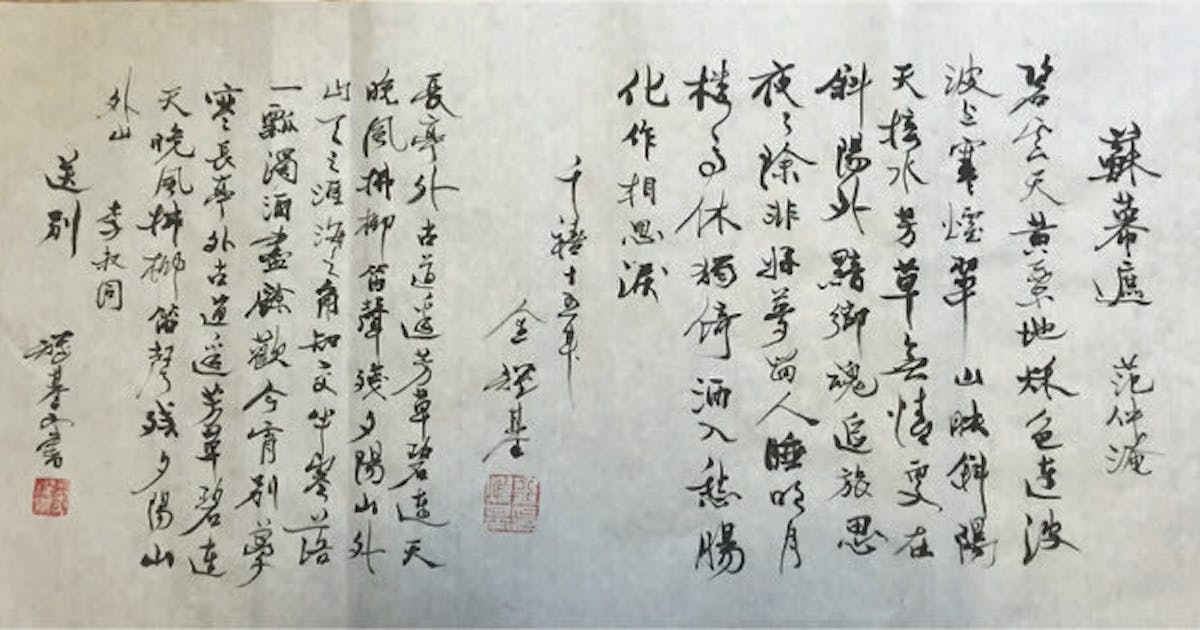 蘇幕遮 范仲淹
碧云天黃葉地秌色連波
波上寒煙翠山映斜陽
天接水芳草無情更在
斜陽外黯鄉魂追旅思
夜夜除非好夢留人睡明月
樓高休獨倚酒入愁腸
化作相思淚
千禧十五年
長亭外古道邊芳草碧連天
晚風拂柳笛聲殘夕陽山外
山天之涯海之角知交半零落
一瓢濁酒盡餘歡今宵別夢
寒長亭外古道邊芳草碧連
天晚風拂柳笛聲殘夕陽山
外山 李叔同
送別